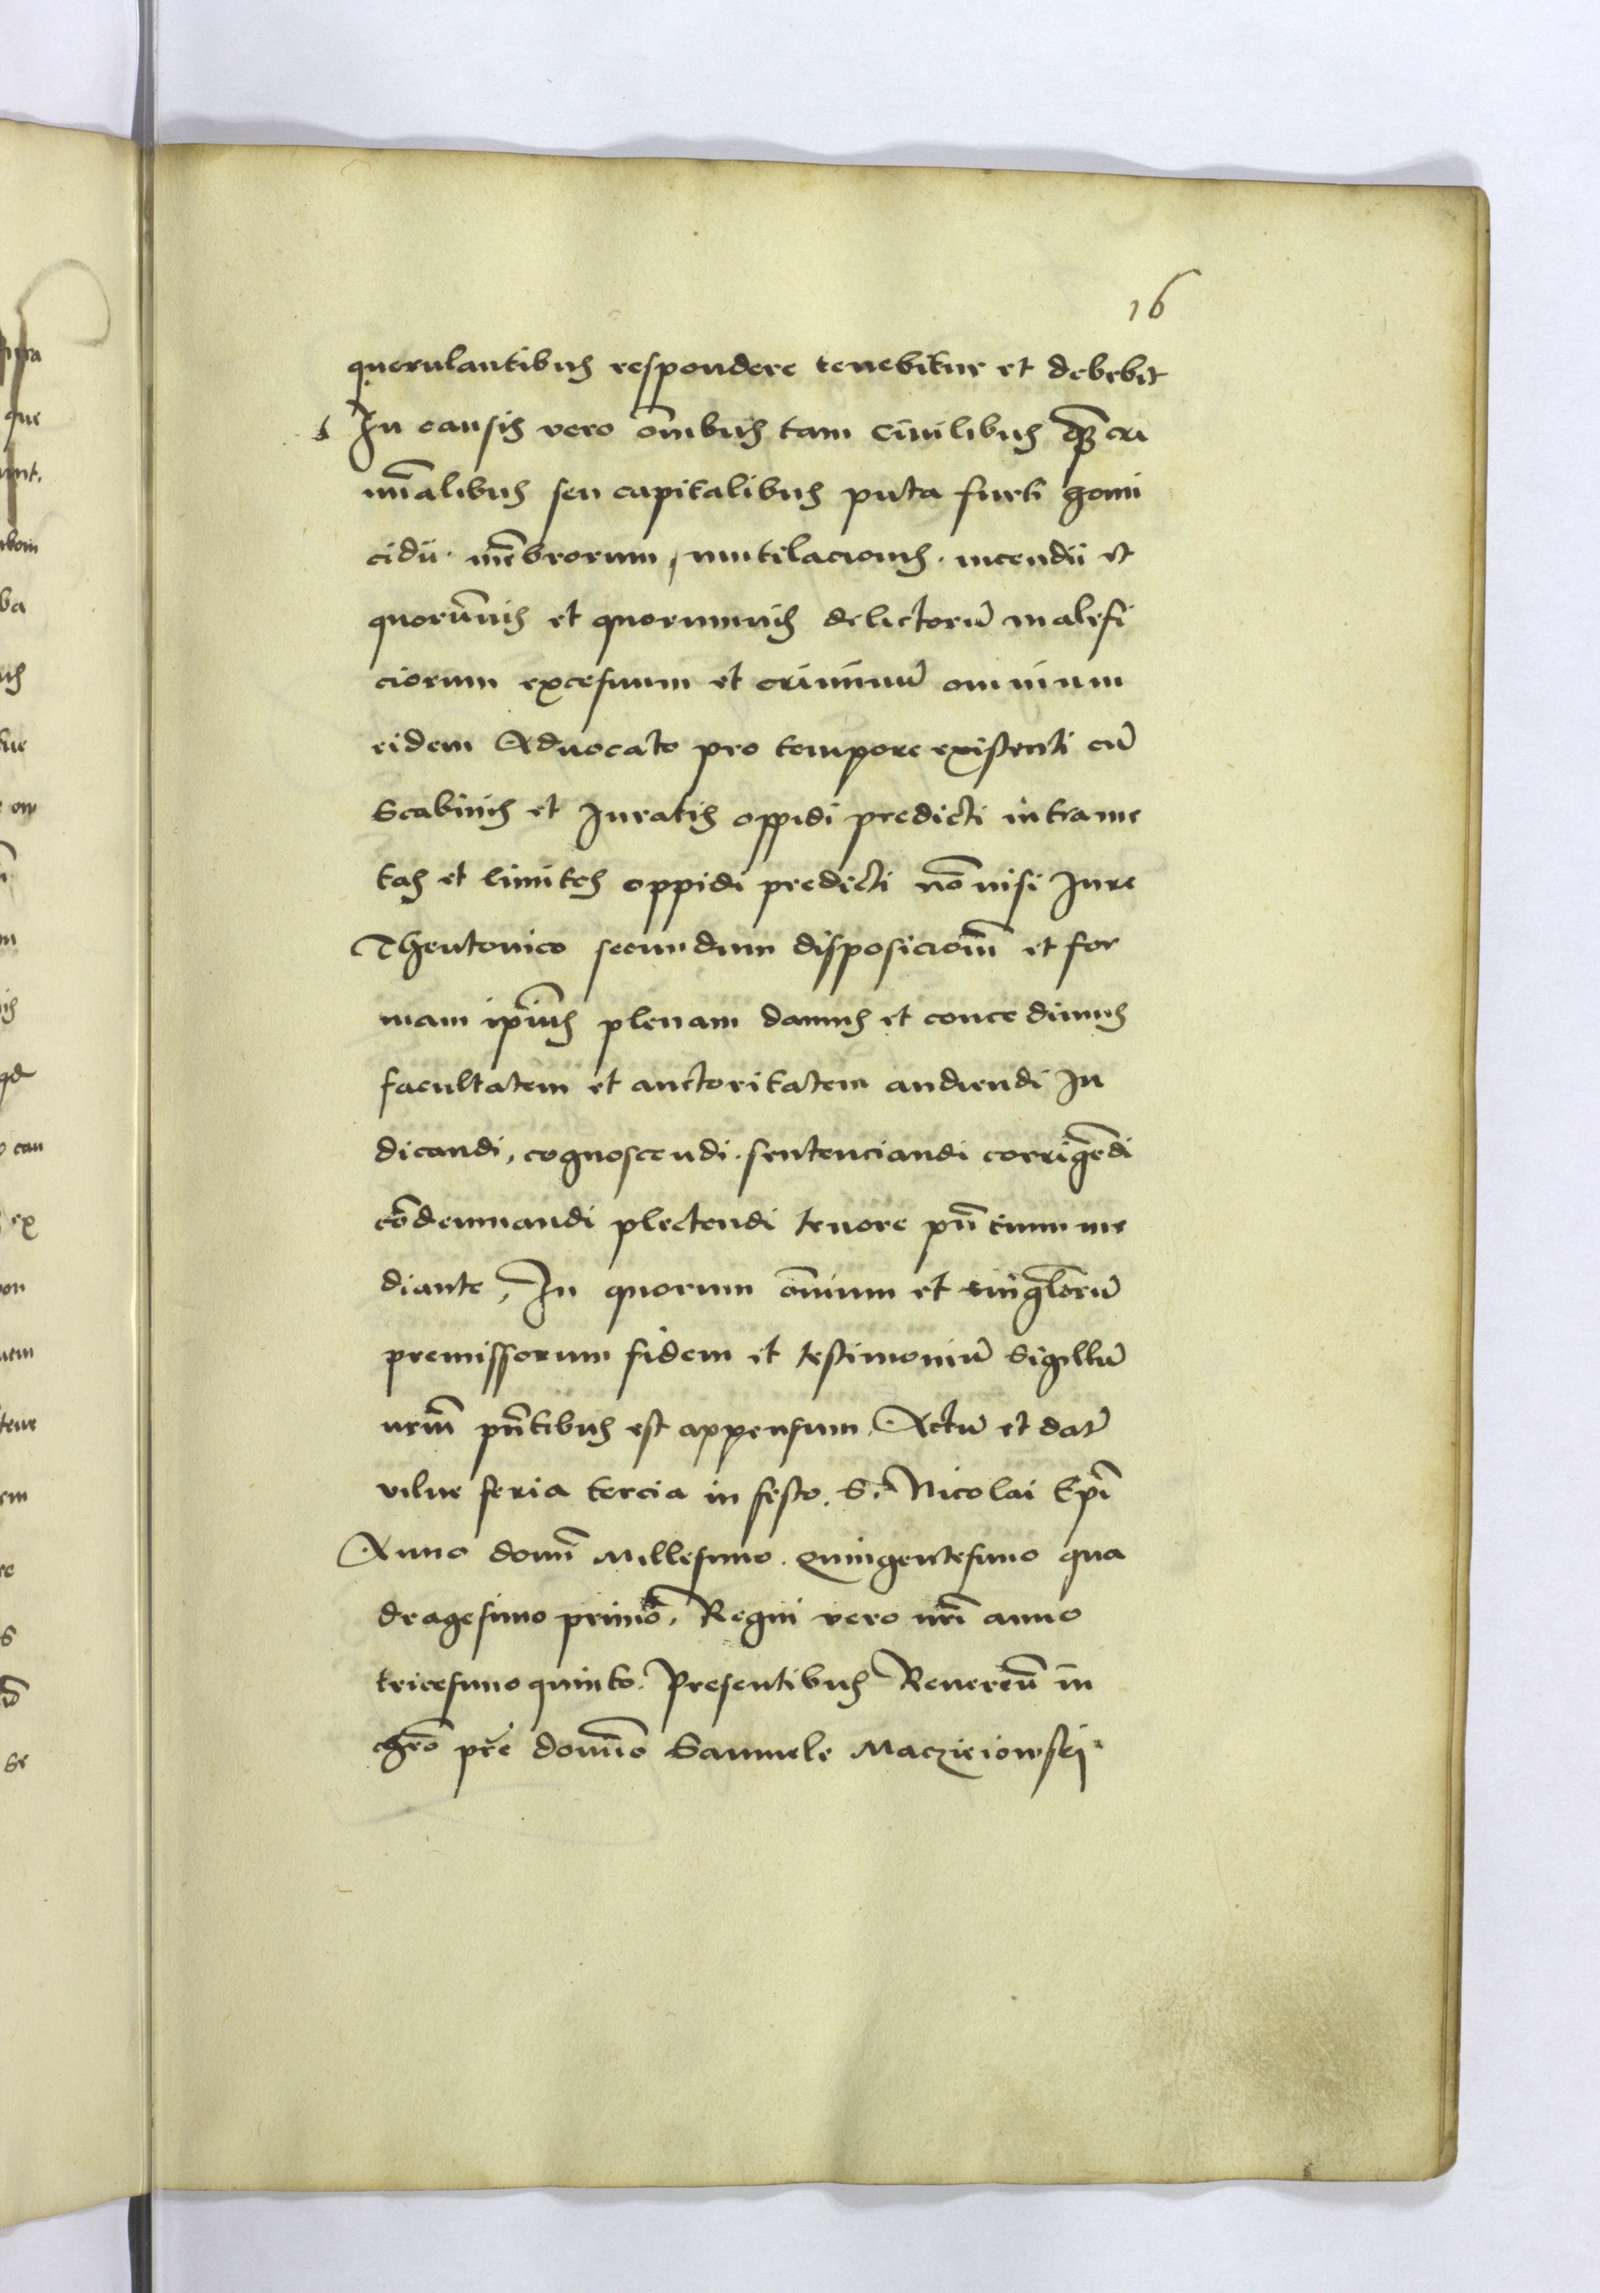 16
querulantibus respondere tenebitur et debebit
In causis vero om̄ibus tam Ciuilibus q̄ cri
mīalibus seu capitalibus puta furti homi
cidii. mēbrorum, mutilacionis. incendii et
quorūuis et quorumuis delictorū malefi
ciorum excesuum et criminū omnium
eidem Aduocato pro tempore existenti cū
Scabinis et Iuratis oppidi predicti intra me
tas et limites oppidi predicti nō nisi Iure
Theutonico secundum disposiciom̄ et for
mam ip̄ius plenam damus et concedimus
facultatem et auctoritatem audiendi Iu
dicandi, cognoscendi. sentenciandi corrigēdi
cōdemnandi plectendi tenore pn̄cium me
diante, In quorum om̄ium et singlorū
premissorum fidem et testimoniū Sigillū
nrm̄ pn̄tibus est appensum, Actū et dat̄
vilne feria tercia in festo. S. Nicolai Ep̄i
Anno domī Millesimo. Quingentesimo qua
dragesimo primo, Regni vero nr̄i anno
tricesimo quinto. Presentibus Reuerēn in
chrō pr̄e domīo Samuele Maczieiowskj